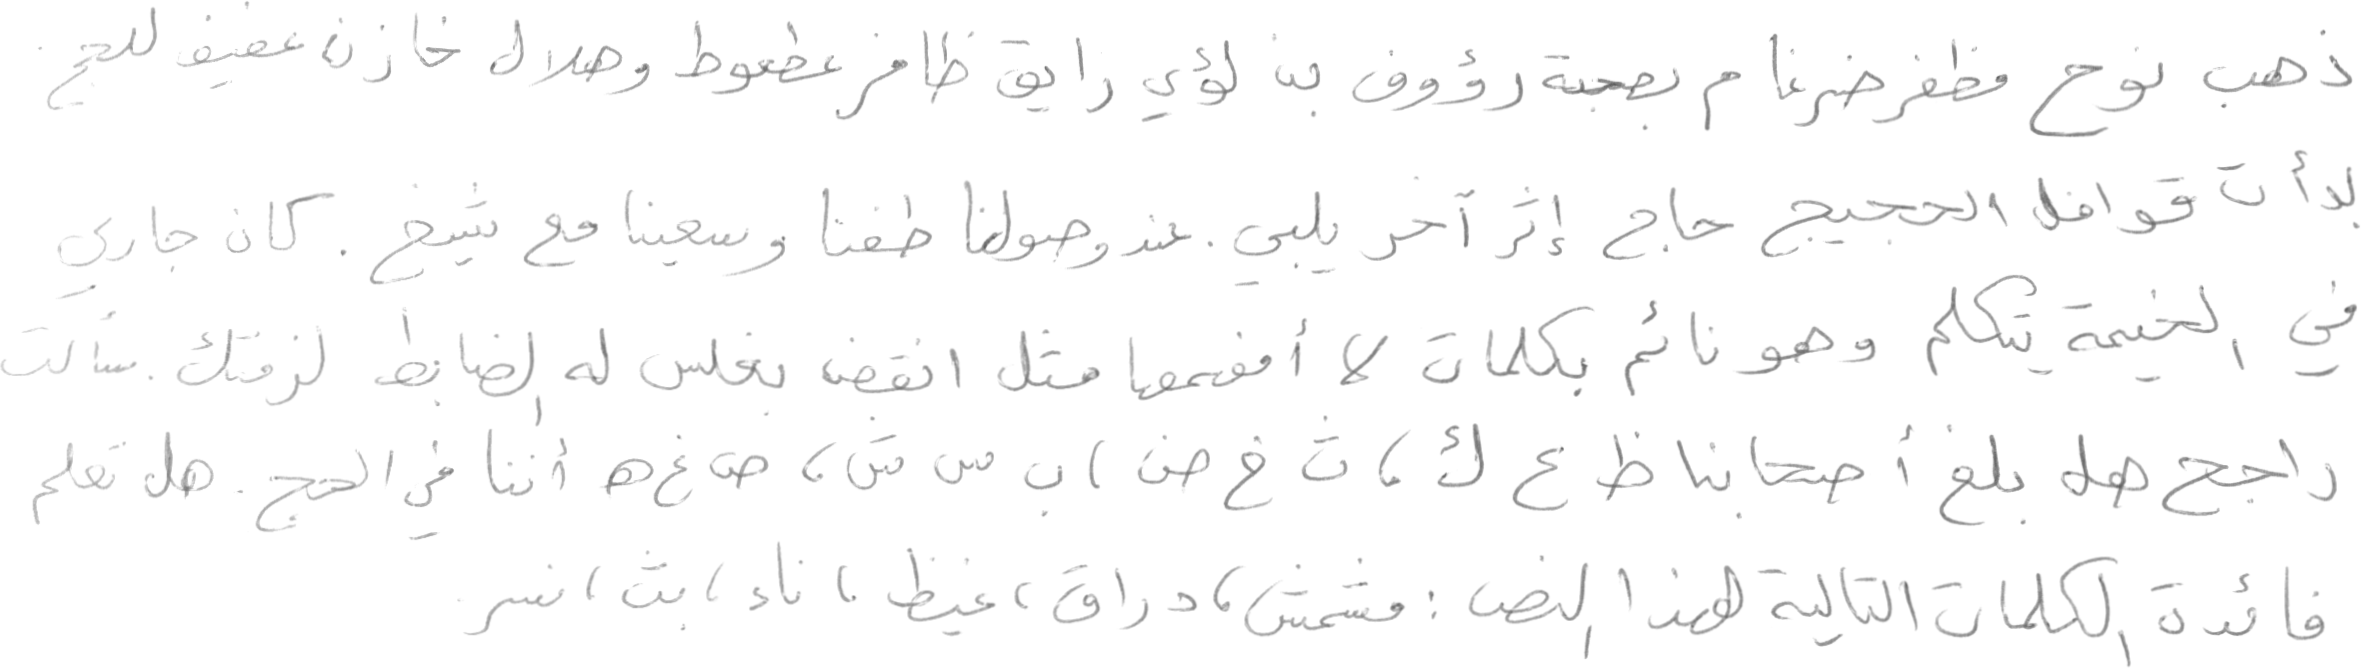 ذهب نوح مظفر ضرغام بصحبة رؤوف بن لؤي رايق ظافر عطعوط وهلال خازن عفيف للحج.
بدأت قوافل الحجيج حاج إثر آخر يلبي. عند وصولنا طفنا وسعينا مع شيخ. كان جاري
في الخيمة يتكلم وهو نائم بكلمات لا أفهمها مثل انقض بغلس له الضابط لزقتك. سألت
راجح هل بلغ أصحابنا ظ ع ك، ث غ ض، ب س ش، ص غ ه أننا في الحج. هل تعلم
فائدة الكلمات التالية لهذا النص: مشمش، دراق، غيظ، ناء، بث، نسر.